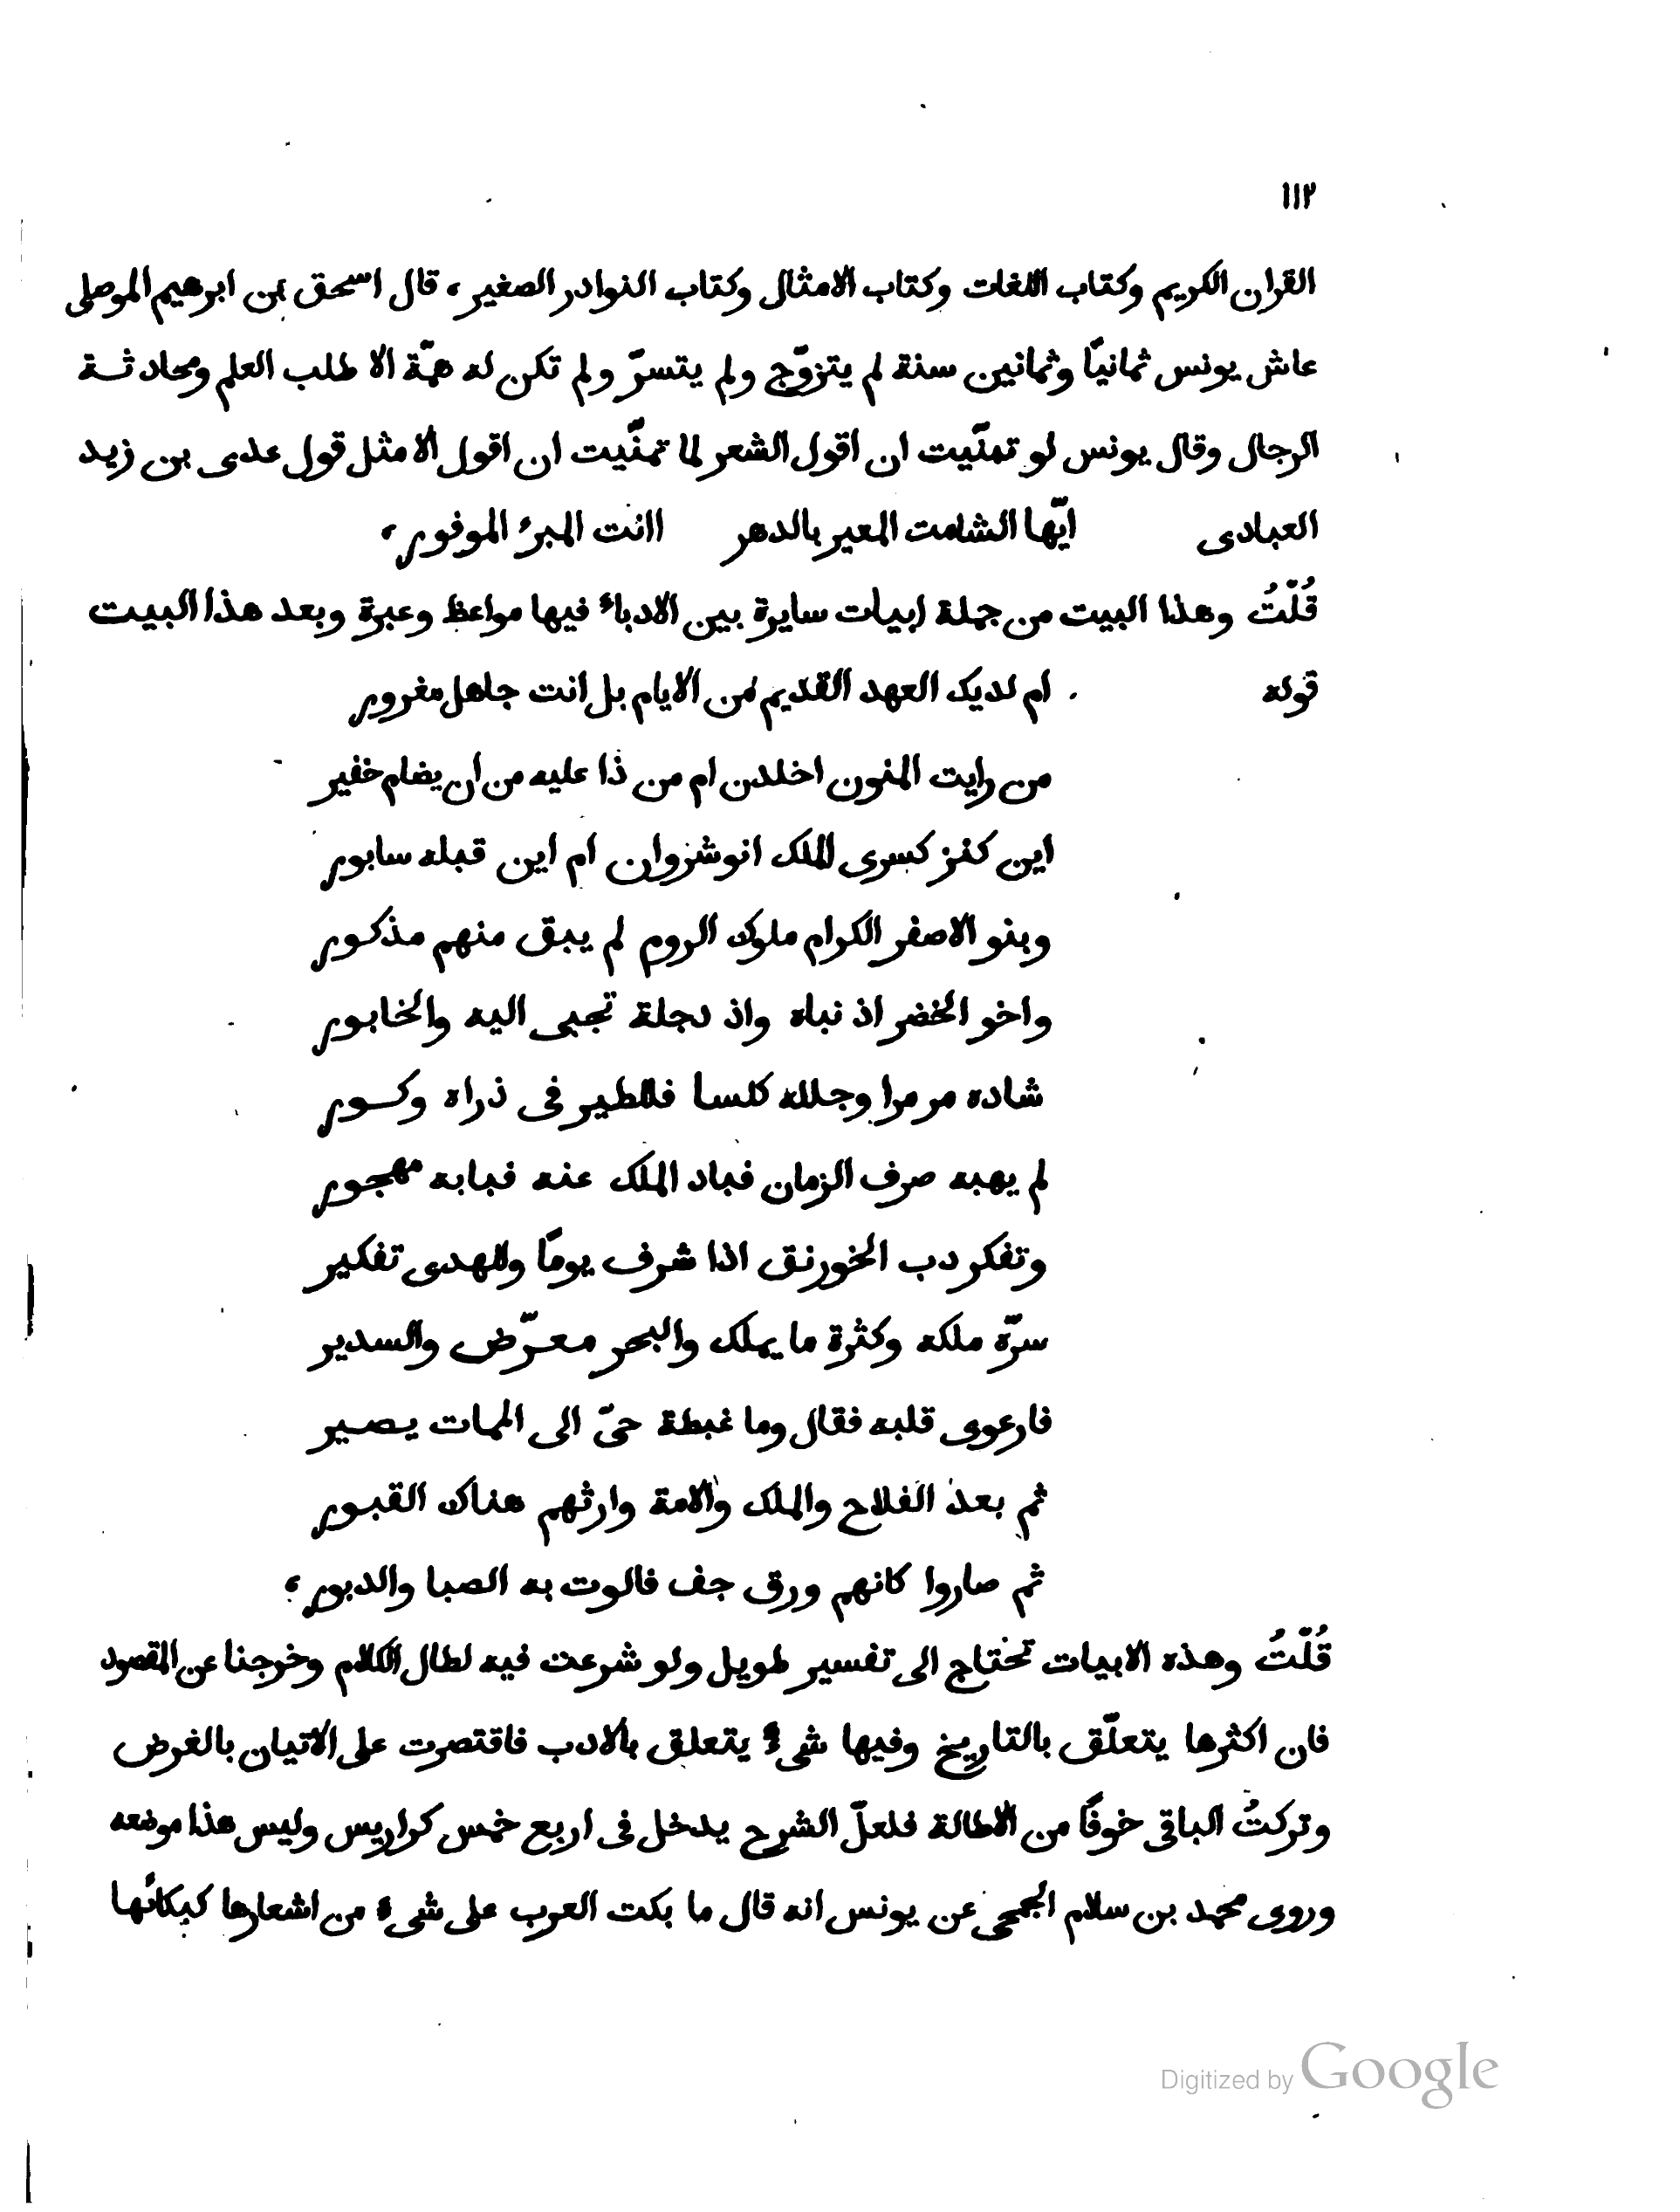 ١١٢
القران الكريم وكتاب اللغات وكتاب الامثال وكتاب النوادر الصغير، قال اسحق بن ابرهيم الموصلى
عاش يونس ثمانيًا وثمانين سنة لم يتزوّج ولم يتسرّ ولم تكن له همّة الا طلب العلم ومحادثة
الرجال وقال يونس لو تمنّيت ان اقول الشعر لما تمنّيت ان اقول الا مثل قول عدى بن زيد
العبادى ايّها الشامت المعير بالدهر اانت المبرئ الموفور،
قُلْتُ وهذا البيت من جملة ابيات سايرة بين الادباء فيها مواعظ وعبرة وبعد هذا البيت
قوله ام لديك العهد القديم من الايام بل انت جاهل مغرور
من رايت المنون اخلدن ام من ذا عليه من ان يضام خفير
اين كنز كسرى الملك انوشزوان ام اين قبله سابور
وبنو الاصفر الكرام ملوك الروم لم يبق منهم مذكور
واخو الخضر اذ نباه واذ دجلة تجبى اليه والخابور
شاده مرمرا وجلله كلسا فللطير فى ذراه وكور
لم يهبه صرف الزمان فباد الملك عنه فبابه مهجور
وتفكر دب الخورنق اذا شرف يومًا وللهدى تفكير
سرّه ملكه وكثرة ما يملك والبحر معرّض والسدير
فارعوى قلبه فقال وما غبطة حىّ الى الممات يصير
ثم بعد الفلاح والملك والامة وارثهم هناك القبور
ثم صاروا كانهم ورق جف فالوت به الصبا والدبور،
قُلْتُ وهذه الابيات تحتاج الى تفسير طويل ولو شرعت فيه لطال الكلام وخرجنا عن المقصود
فان اكثرها يتعلّق بالتاريخ وفيها شىء يتعلق بالادب فاقتصرت على الاتيان بالغرض
وتركتُ الباقى خوفًا من الاطالة فلعلّ الشرح يدخل فى اربع خمس كراريس وليس هذا موضعه
وروى محمد بن سلام الجمحى عن يونس انه قال ما بكت العرب على شىء من اشعارها كبكائها
Digitized by Google